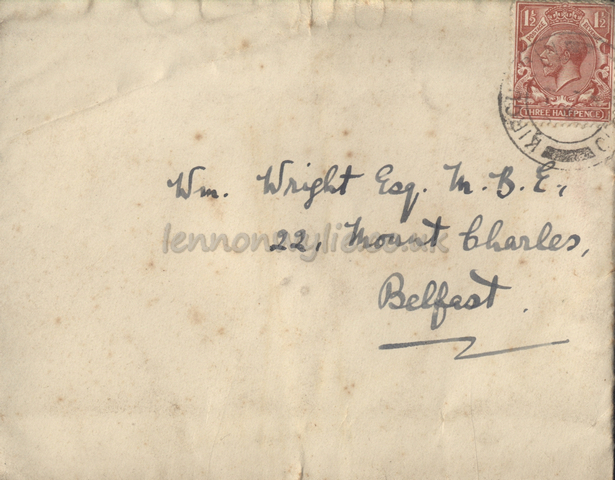 1½ 1½
THREE HALFPENCE
Wm. Wright Esq. M.B.E.,
22, Mount Charles,
Belfast.
lennonwylie.co.uk